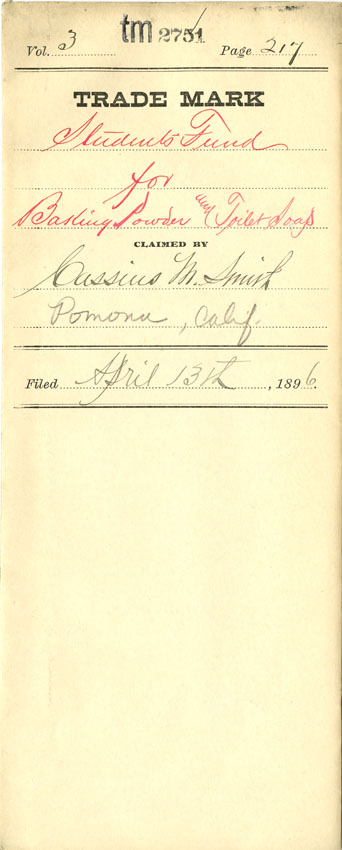 tm 2751
Vol. 3 Page 217
TRADE MARK
Students' Fund
for
Baking Powder and Toilet Soap
CLAIMED BY
Cassius M. Smith
Pomona, Calif.
Filed April 13th, 1896.